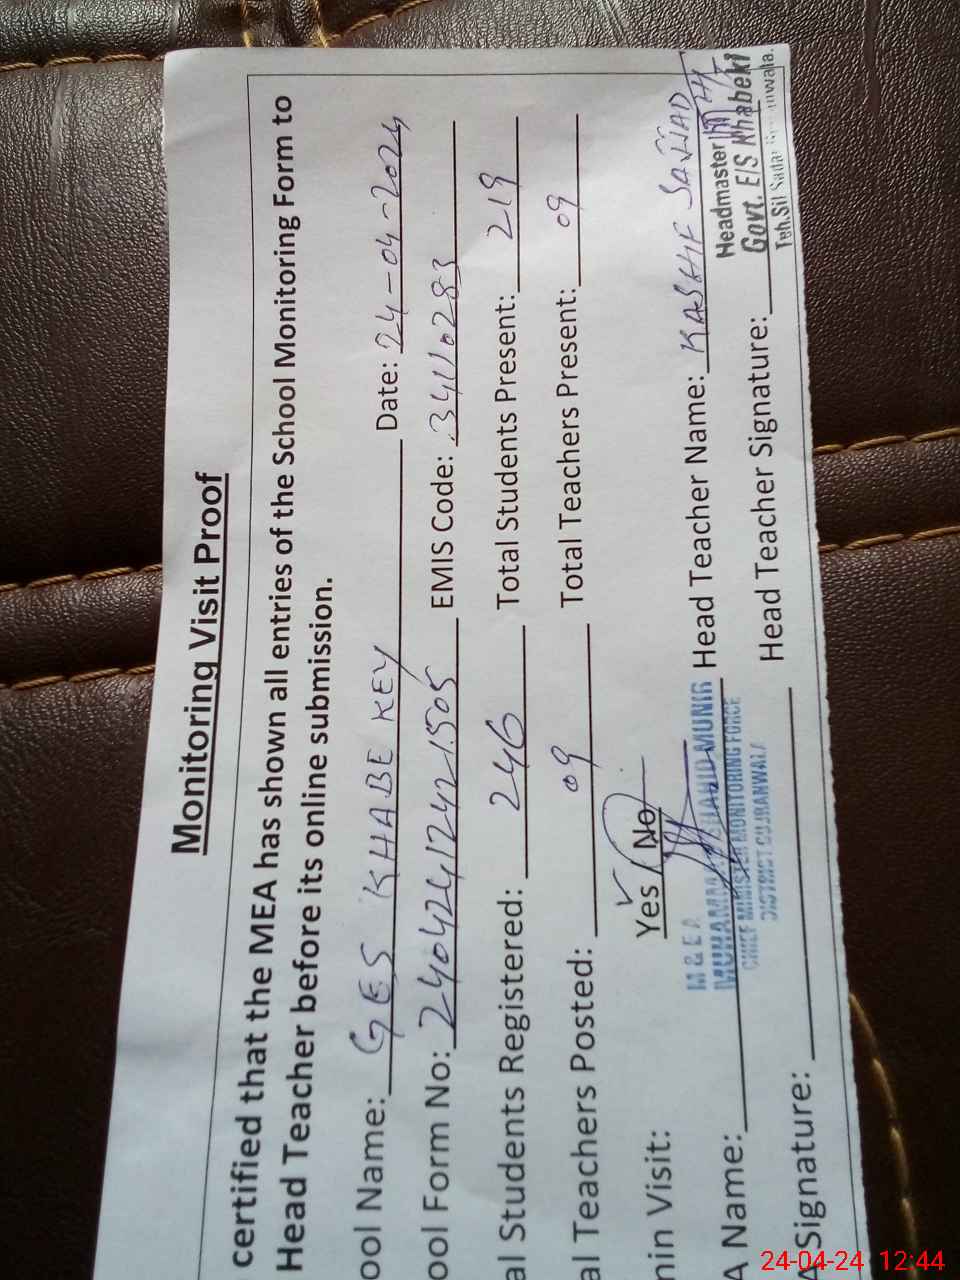 Monitoring Visit Proof
certified that the MEA has shown all entries of the School Monitoring Form to
Head Teacher before its online submission.
ool Name: GES KHABE KEY Date: 24-04-2024
ool Form No: EMIS Code: 34110283
al Students Registered: 246 Total Students Present: 219
al Teachers Posted: 09 Total Teachers Present: 09
min Visit: Yes / No
M & E A
SHAHID MUNIR
CHIEF MINISTER MONITORING FORCE
DISTRICT GUJRANWALA
A Name: Head Teacher Name: KASHIF SAJJAD
Headmaster
Govt. E/S Khabeki
Teh.Sil Sadar
A Signature: Head Teacher Signature:
24-04-24 12:44